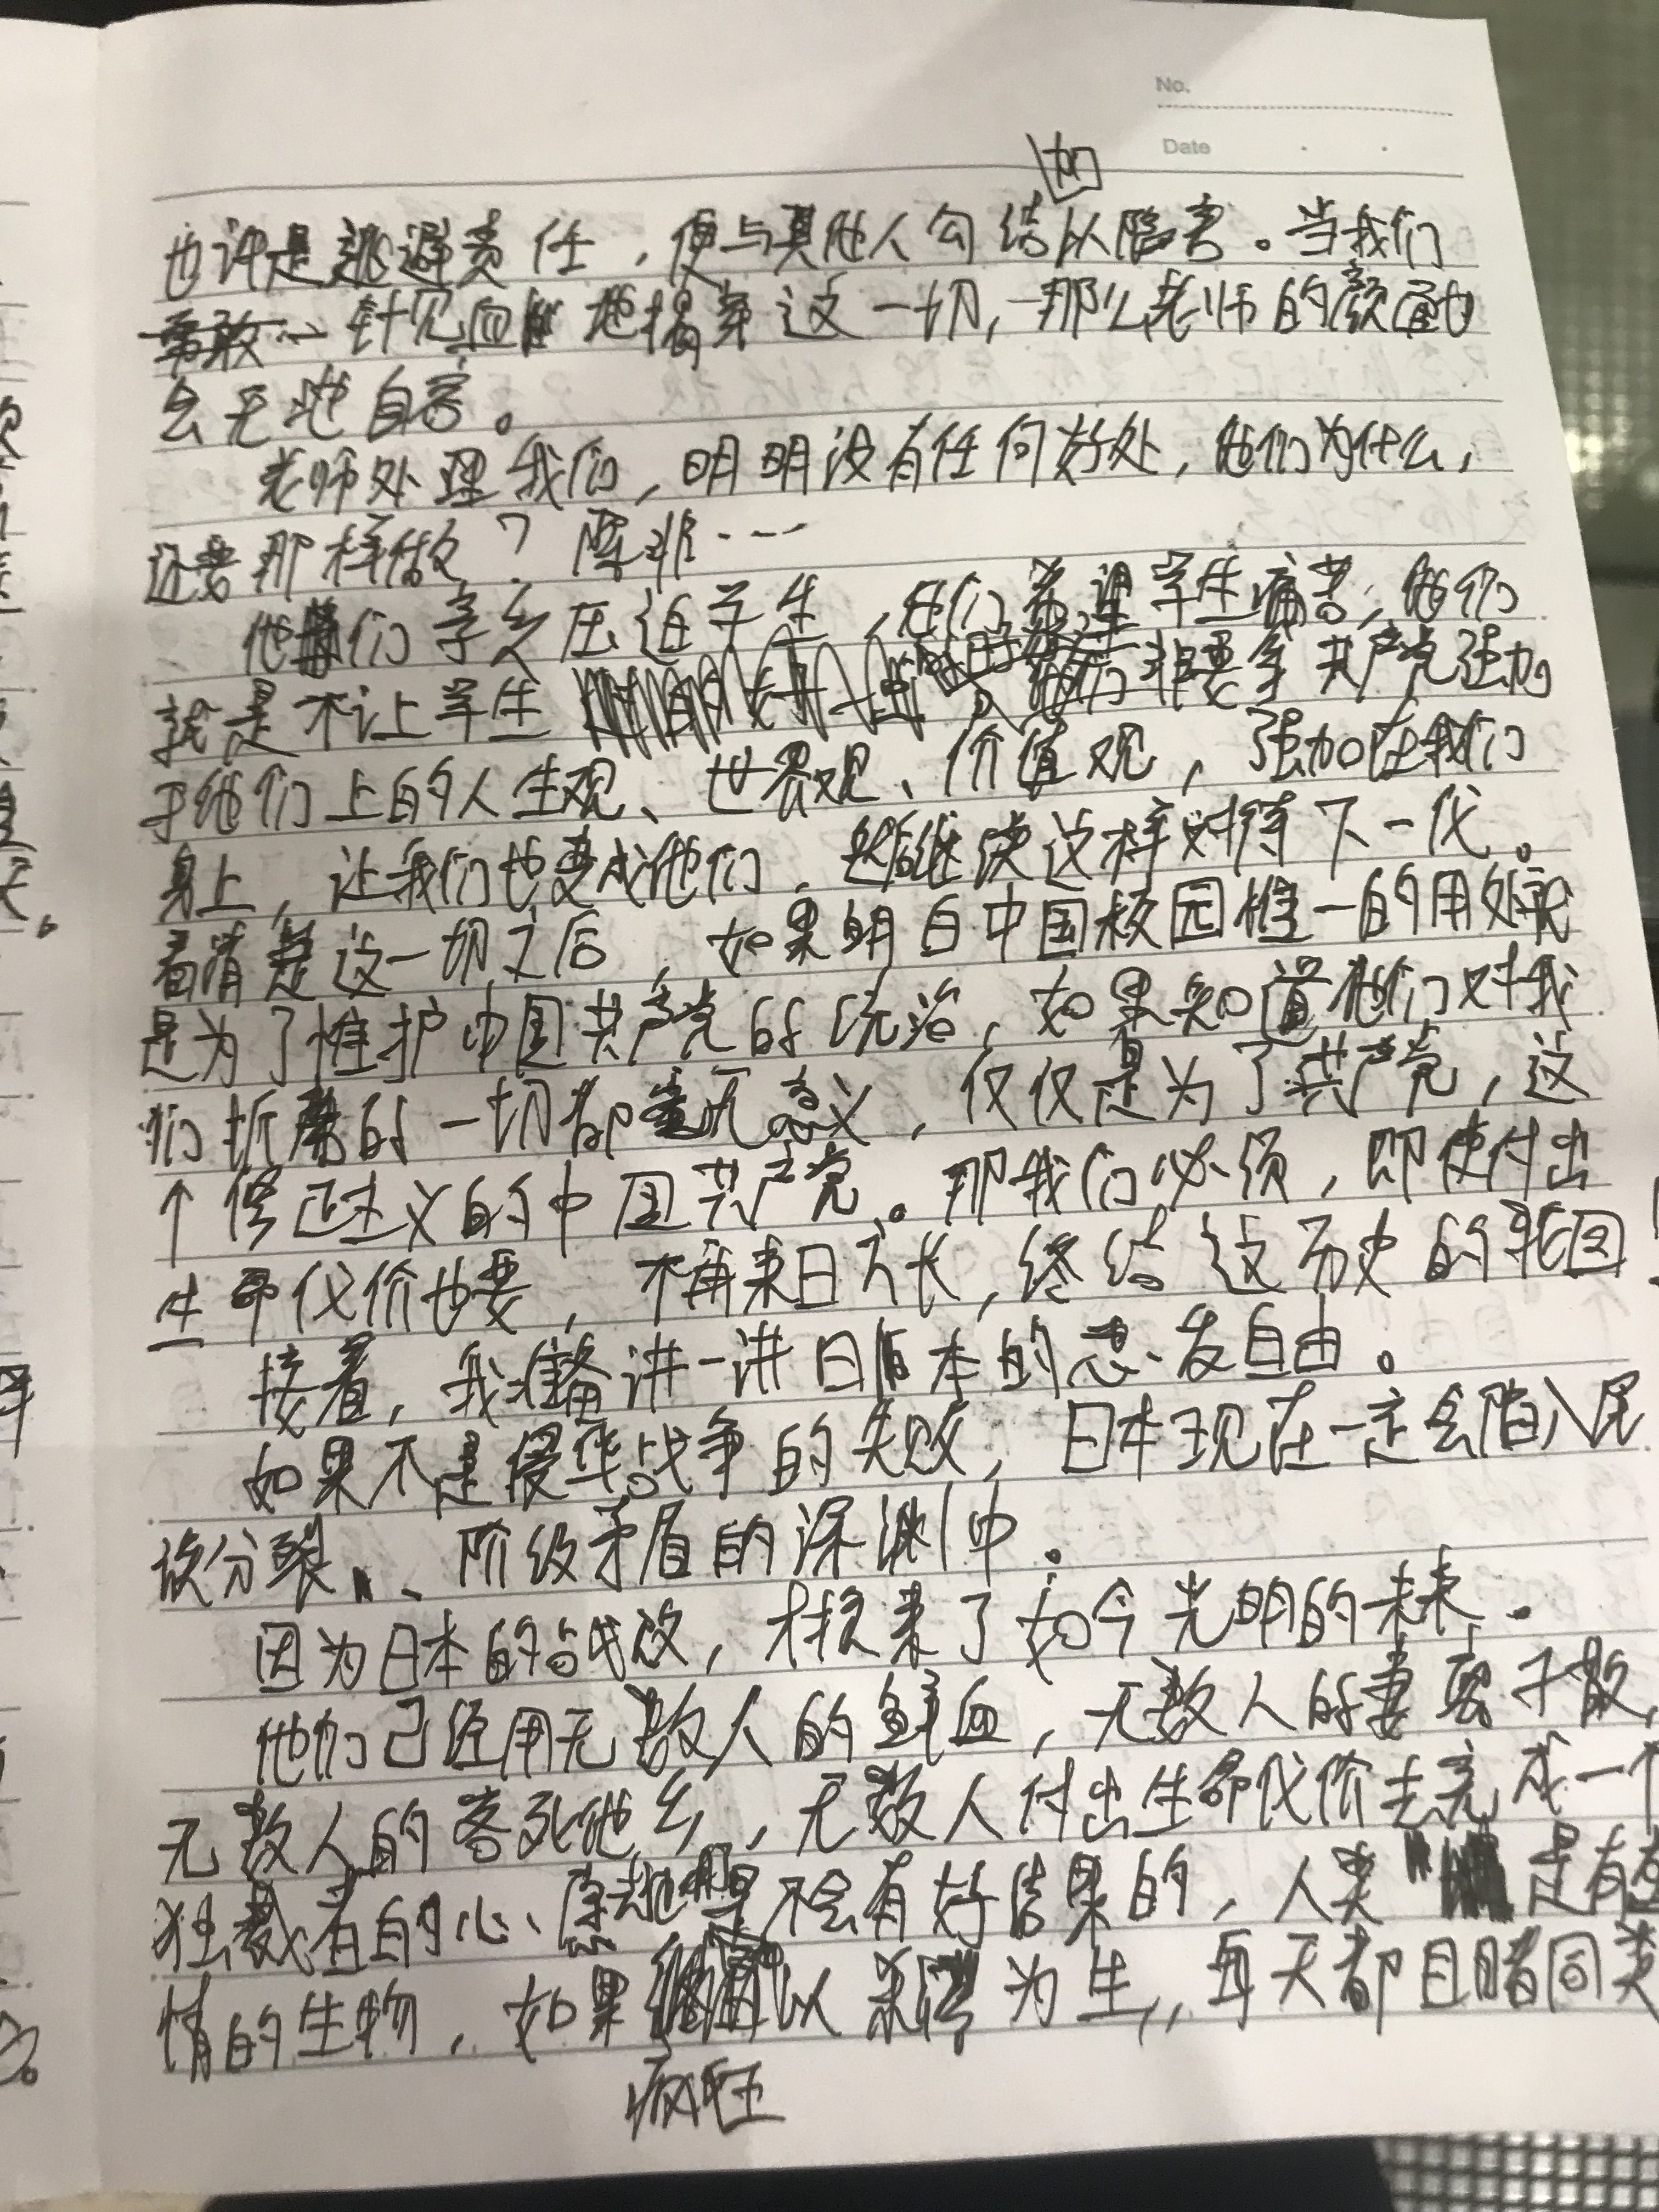 No.
Date
如
也许是逃避责任，便与其他人勾结以陷害。当我们
勇敢一针见血地揭穿这一切，那么老师的颜面也
会无地自容。
老师处理我们，明明没有任何好处，他们为什么，
还要那样做？除非…
他们享受压迫学生，他们希望学生痛苦，他们
就是不让学生 他们非要拿共产党强加
于他们上的人生观、世界观、价值观，强加在我们
身上，让我们也变成他们，然后继续这样对待下一代。
看清楚这一切之后，如果明白中国校园惟一的用处就
是为了惟护中国共产党的统治，如果知道他们对我
们折磨的一切都毫无意义，仅仅是为了共产党，这
个修正主义的中国共产党。那我们必须，即使付出
生命代价也要，不再来日方长，终结这历史的轮回！
接着，我准备讲一讲日本的思发自由。
如果不是侵华战争的失败，日本现在一定会陷入民
族分裂、阶级矛盾的深渊中。
因为日本的战败，才换来了如今光明的未来。
他们已经用无数人的鲜血，无数人的妻离子散，
无数人的客死他乡，无数人付出生命代价去完成一个
独裁者的心愿 是不会有好结果的，人类 是有
情的生物，如果 以杀 为生，每天都目睹同类
疯狂